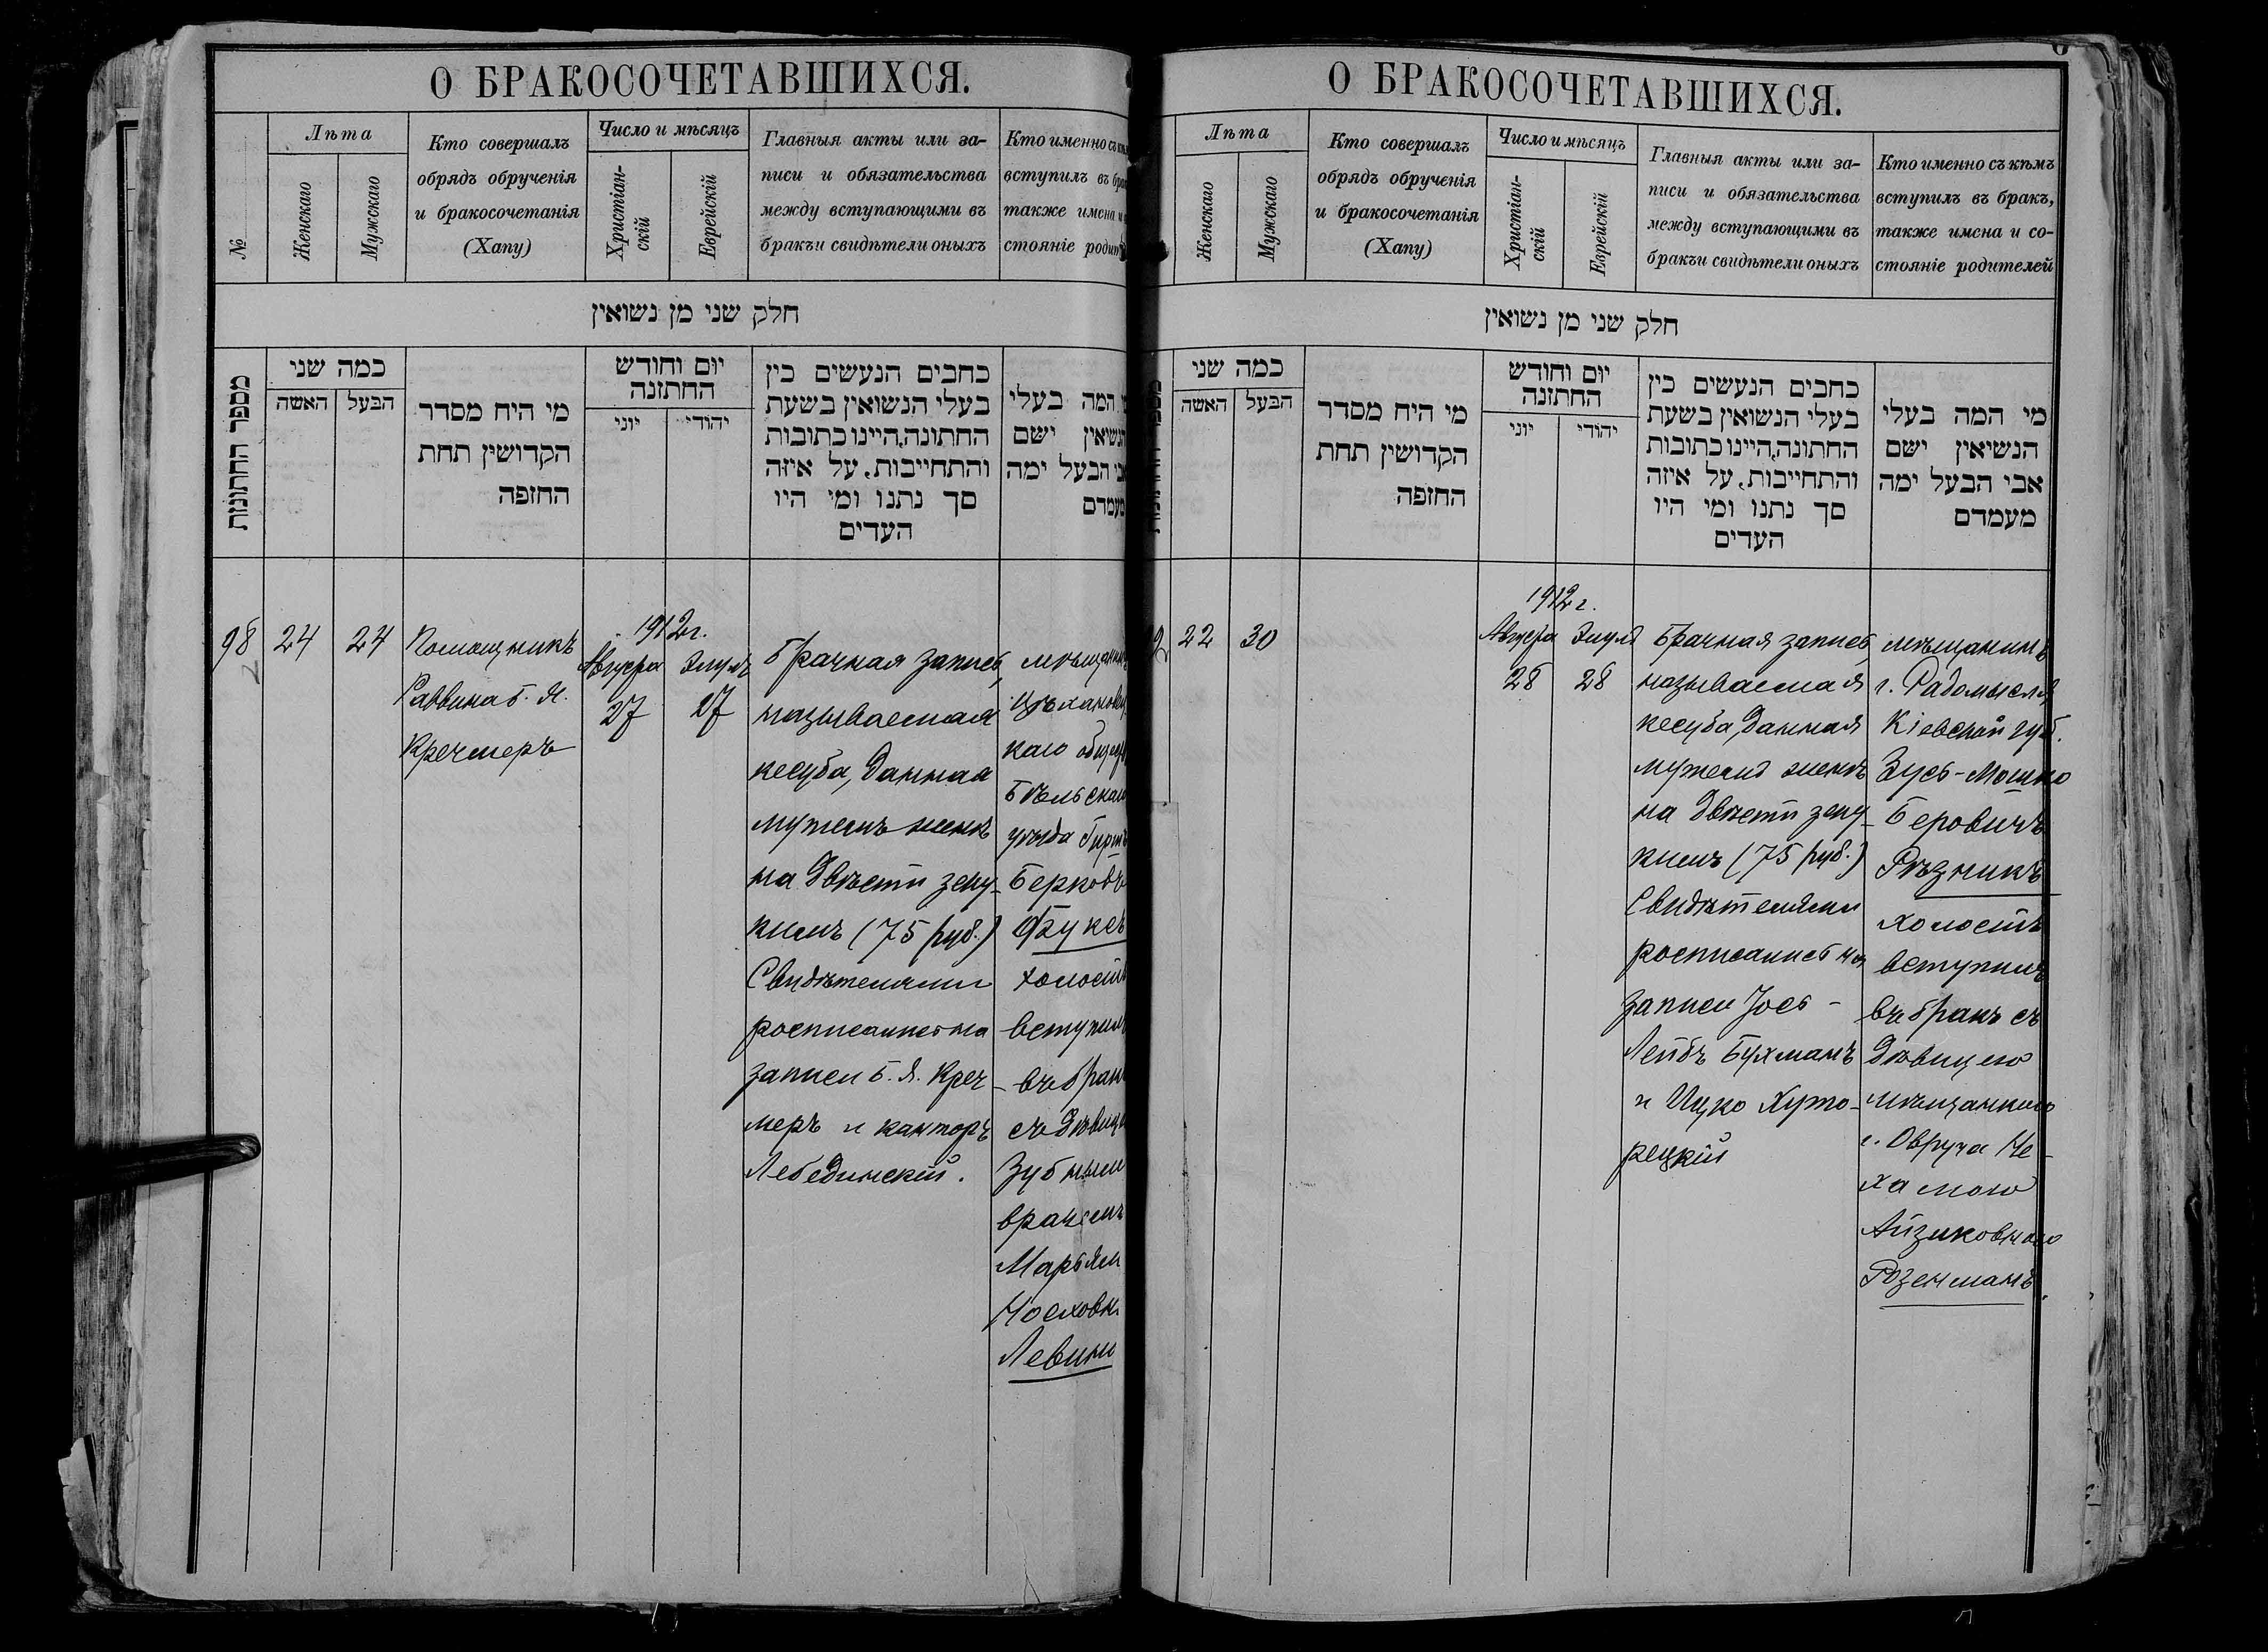 О БРАКОСОЧЕТАВШИХСЯ.
№
Лѣта
Женскаго
Мужскаго
Кто совершалъ
обрядъ обрученія
и бракосочетанія
(Хапу)
Число и мѣсяцъ
Христіан-
скій
Еврейскій
Главныя акты или за-
писи и обязательства
между вступающими въ
бракъи свидѣтели оныхъ
Кто именно съ
вступилъ въ
также имена и
стояніе
חלק שני מן נשואין
מספר החתונות
כמה שני
האשה
הבעל
מי היח מסדר
הקדושין תחת
החזפה
יום וחודש
החתזנה
יוני
יהודי
כחבים הנעשים כין
בעלי הנשואין בשעת
החתונה,היינו כתובות
והתחייבות, על איזה
סך נתנו ומי היו
העדים
המה בעלי
הנשיאין ישם
אבי הבעל ימה
מעמדם
98
24
24
Помощникъ
Раввина Б. Я.
Кречмеръ
1912 г.
Августа
27
Элулъ
27
Брачная запись,
называемая
кесуба, данная
мужемъ женѣ
на двѣсти зеку-
кимъ (75 руб.)
Свидѣтелями
росписались на
записи Б. Я. Креч-
меръ и канторъ
Лебединскій.
мѣщанинъ
каго
Бѣльскаго
уѣзда
Берков
Фуксъ
холостъ
вступилъ
въ бракъ
съ дѣвице
Зубным
врачемъ
Марьям
Носковн
Левин
О БРАКОСОЧЕТАВШИХСЯ.
Лѣта
Женскаго
Мужскаго
Кто совершалъ
обрядъ обрученія
и бракосочетанія
(Хапу)
Число и мѣсяцъ
Христіан-
скій
Еврейскій
Главныя акты или за-
писи и обязательства
между вступающими въ
бракъи свидѣтели оныхъ
Кто именно съ кѣмъ
вступилъ въ бракъ,
также имена и со-
стояніе родителей
חלק שני מן נשואין
כמה שני
האשה
הבעל
מי היח מסדר
הקדושין תחת
החזפה
יום וחודש
החתזנה
יוני
יהודי
כחבים הנעשים כין
בעלי הנשואין בשעת
החתונה,היינו כתובות
והתחייבות, על איזה
סך נתנו ומי היו
העדים
מי המה בעלי
הנשיאין ישם
אבי הבעל ימה
מעמדם
22
30
1912 г.
Августа
28
Элулъ
28
Брачная запись,
называемая
кесуба, данная
мужемъ женѣ
на двѣсти зеку-
кимъ (75 руб.)
Свидѣтелями
росписались на
записи Іось-
Лейбъ Бухманъ
и Ицко Хуто-
рецкій
мѣщанинъ
г. Радомысля,
Кіевской губ.
Зусь-Мошко
Беровичъ
Рѣзникъ
холостъ
вступилъ
въ бракъ съ
дѣвицею
мѣщанкою
г. Овруча Не-
хамою
Айзиковною
Розенманъ.